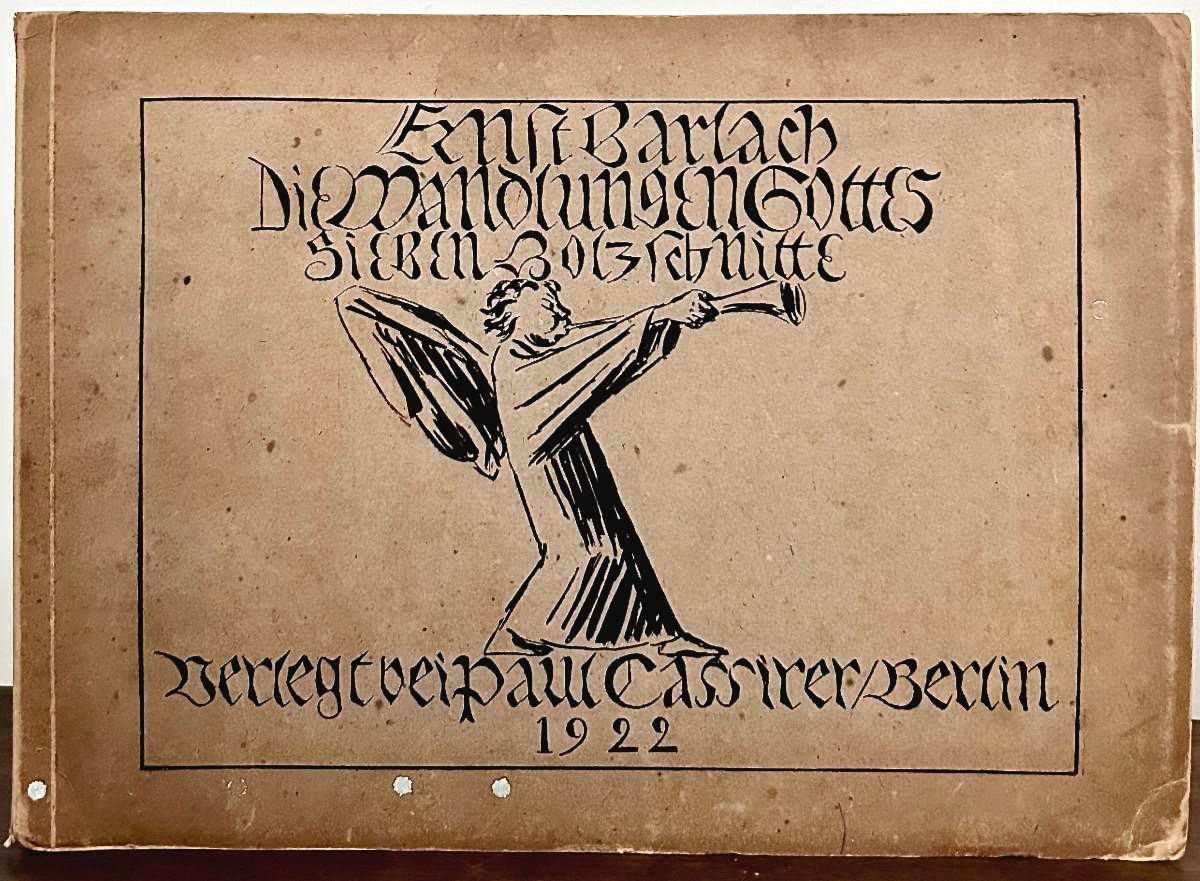 Ernst Barlach
Die Wandlungen Gottes
Sieben Holzschnitte
Verlegt bei Paul Cassirer/Berlin
1922